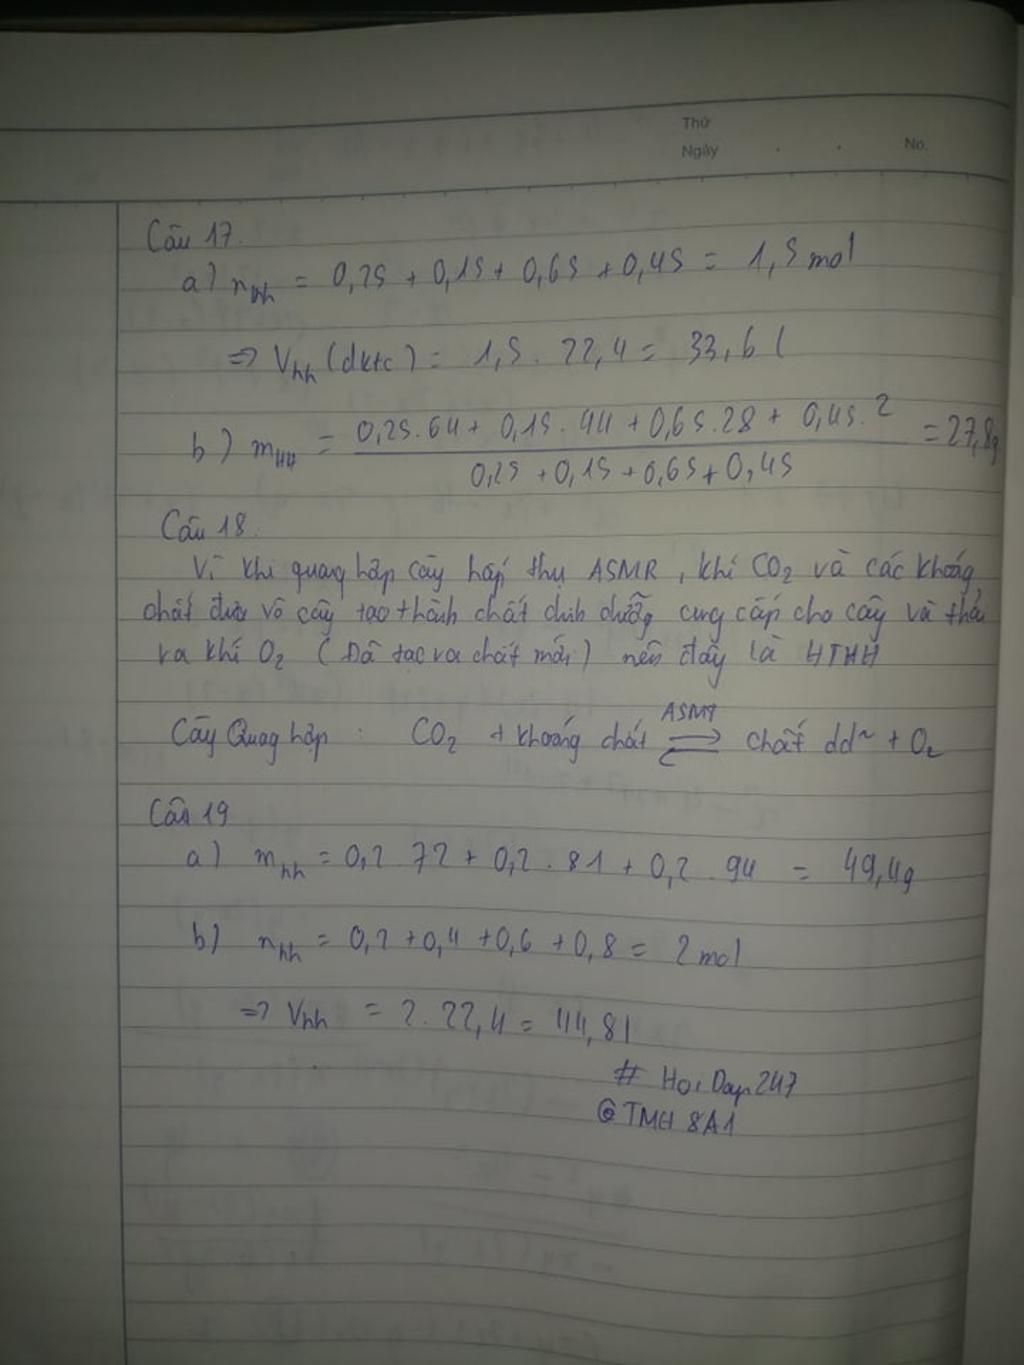 Thứ
Ngày . . No.
Câu 17.
a) nhh = 0,25 + 0,15 + 0,65 + 0,45 = 1,5 mol
=> Vhh (đktc) = 1,5 . 22,4 = 33,6 l
b) mHH = 0,25.64 + 0,15.44 + 0,65.28 + 0,45.2 = 27,8g
0,25 + 0,15 + 0,65 + 0,45
Câu 18.
Vì khi quang hợp cây hấp thụ ASMR, khí CO2 và các khoáng
chất đưa vô cây tạo thành chất dinh dưỡng cung cấp cho cây và thải
ra khí O2 (Đã tạo ra chất mới) nên đây là HTHH
Cây Quang hợp : CO2 + khoáng chất ASMT ⇌ chất dd~ + O2
Câu 19
a) mhh = 0,2 . 72 + 0,2 . 81 + 0,2 . 94 = 49,4g
b) nhh = 0,2 + 0,4 + 0,6 + 0,8 = 2 mol
=> Vhh = 2 . 22,4 = 44,8l
# HoiDap247
@TMH 8A1